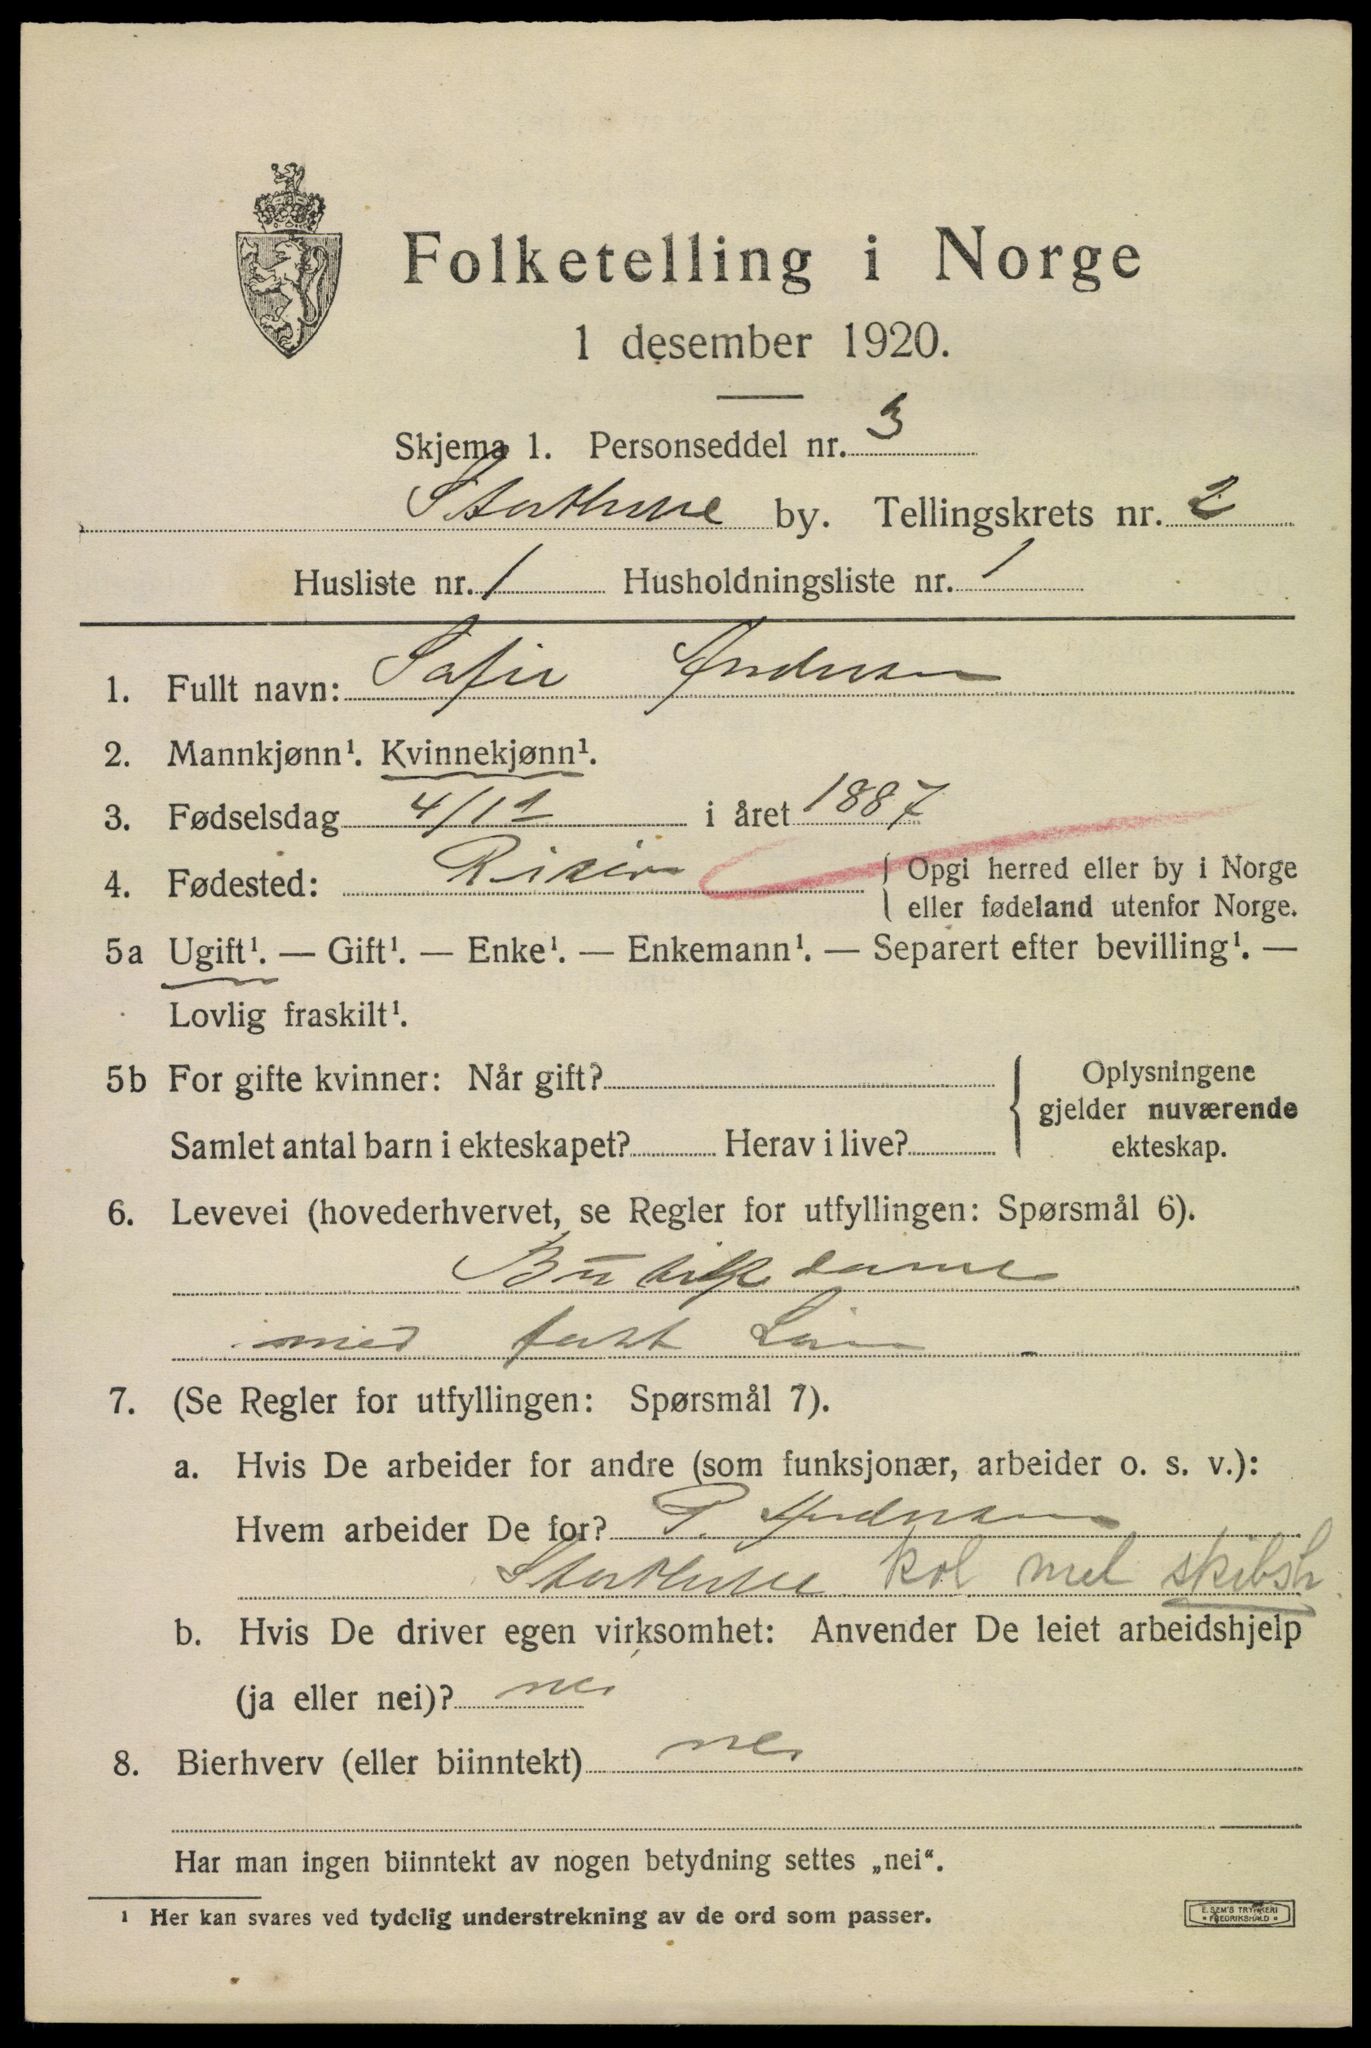 Folketelling i Norge
1 desember 1920.
Skjema 1. Personseddel nr. 3
Stathelle by. Tellingskrets nr. 2
Husliste nr. 1 Husholdningsliste nr. 1
1. Fullt navn: Sofie Andersen
2. Mannkjønn¹. Kvinnekjønn¹.
3. Fødselsdag 4/11 i året 1887
4. Fødested: Risør { Opgi herred eller by i Norge
eller fødeland utenfor Norge.
5a Ugift¹. — Gift¹. — Enke¹. — Enkemann¹. — Separert efter bevilling¹. —
Lovlig fraskilt¹.
5b For gifte kvinner: Når gift?
Samlet antal barn i ekteskapet? Herav i live?
Oplysningene
gjelder nuværende
ekteskap.
6. Levevei (hovederhvervet, se Regler for utfyllingen: Spørsmål 6).
Butikdame
med fast Løn
7. (Se Regler for utfyllingen: Spørsmål 7).
a. Hvis De arbeider for andre (som funksjonær, arbeider o. s. v.):
Hvem arbeider De for? P. Andersen
Stathelle kol mel skibsh
b. Hvis De driver egen virksomhet: Anvender De leiet arbeidshjelp
(ja eller nei)? nei
8. Bierhverv (eller biinntekt) nei
Har man ingen biinntekt av nogen betydning settes „nei“.
¹ Her kan svares ved tydelig understrekning av de ord som passer.
E. SEM'S TRYKKERI
FREDRIKSHALD